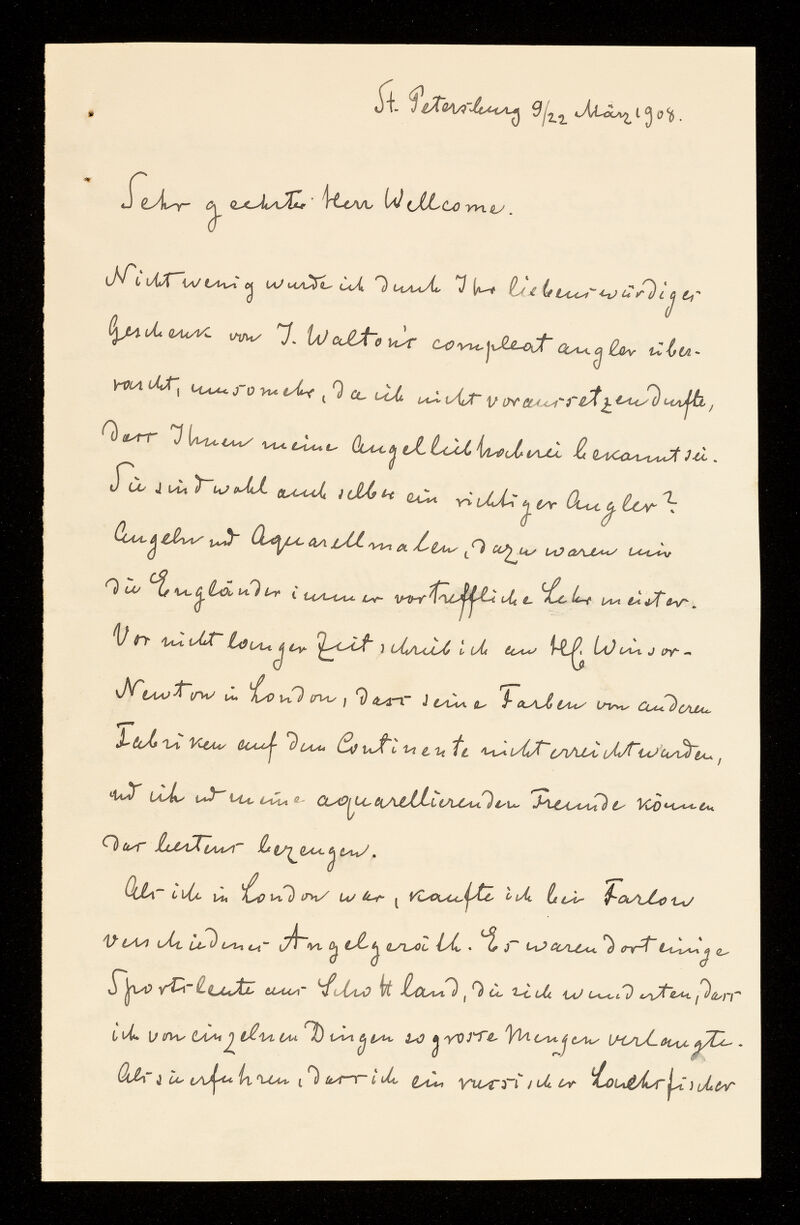 St. Petersburg 9/22 März 1908.
Sehr geehrter Herr Wellcome.
Nicht wenig wurde ich durch Ihr liebenswürdiges
Geschenk von I. Walton's compleat angler über-
rascht, umsomehr, da ich nicht voraussetzen durfte,
dass Ihnen meine Angelliebhaberei bekannt sei.
Sie sind wohl auch selber ein richtiger Angler?
Angeln und Aquarellmalen, dazu waren mir
die Engländer immer vortreffliche Lehrmeister.
Vor nicht langer Zeit schrieb ich an Winsor-
Newton in London, dass seine Farben von anderen
Fabriken auf dem Continente nicht erreicht wurden,
und ich und meine aquarellierenden Freunde können
das bestens bezeugen.
Als ich in London war, kaufte ich bei Farlow
verschiedenes Angelgeräth. Es waren dort einige
Sportsleute aus Schottland, die sich wunderten, dass
ich von einzelnen Dingen so grosse Mengen verlangte.
Als sie erfuhren, dass ich ein russischer Lachsfischer